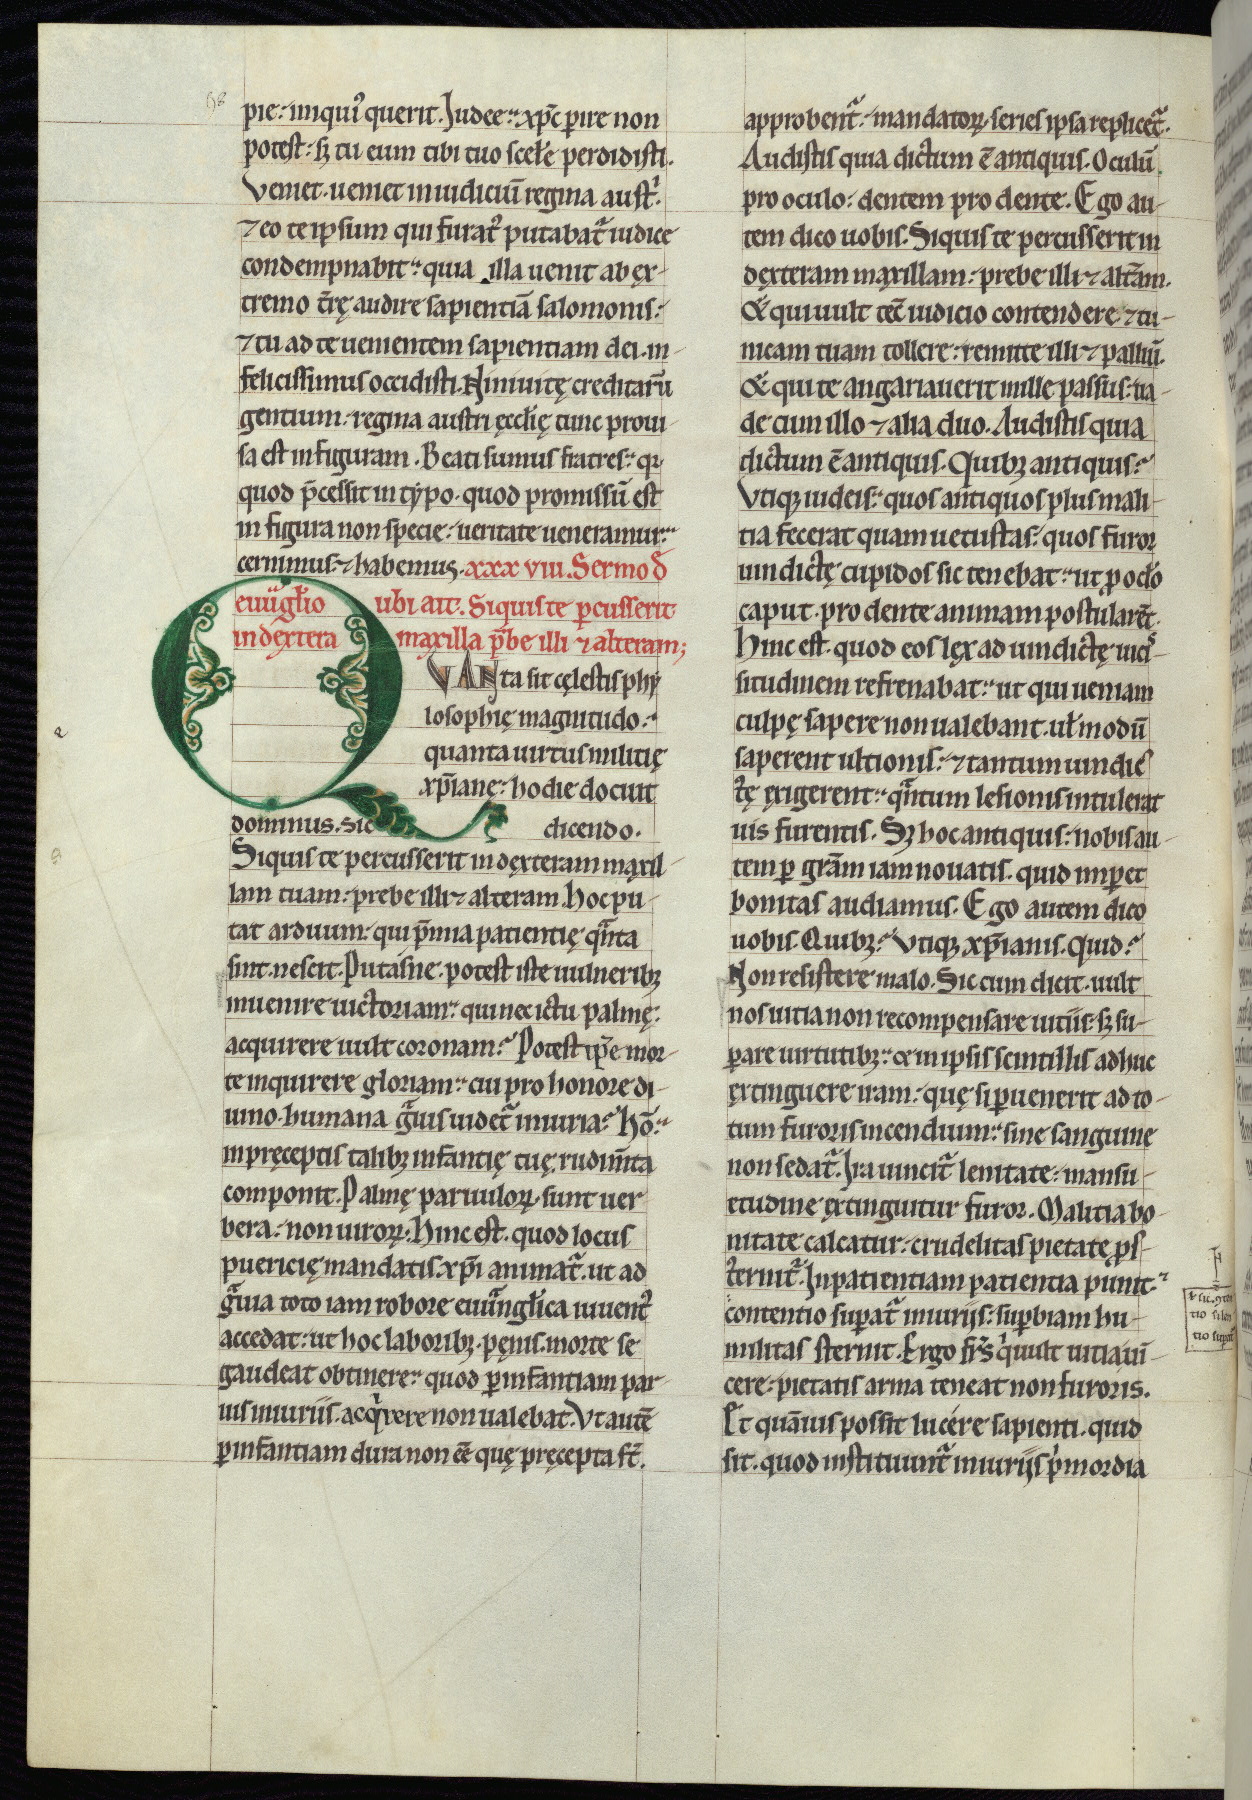 pie: iniqui᷒ querit. Iudee: xp̄c p̱ire non
potest: sꝫ tu eum tibi tuo scel̄e perdidisti.
Veniet. ueniet in iudiciū regina austⁱ.
⁊ eo te ipsum qui furat᷒ putabat᷒ iudice
condempnabit: quia illa uenit ab ex-
tremo t̄rę audire sapientiā salomonis:
⁊ tu ad te uenientem sapientiam dei. in-
felicissimus occidisti. Niniuitę creditarū
gentium: regina austri ęccl̄ię tunc proui-
sa est in figuram. Beati sumus fratres: qꝛ
quod p̄cessit in typo. quod promissū est
in figura non specie: ueritate ueneramur:
cernimus: ⁊ habemus. xxx viii. Sermo d̄
euūgl̄io ubi ait. Siquis te p̱cusserit
in dextera maxilla p̄be illi ⁊ alteram;
QVANta sit cęlestis phy
losophię magnitudo:
quanta uirtus militię
xp̄ianę: hodie docuit
dominus. sic dicendo.
Siquis te percusserit in dęxteram maxil-
lam tuam: prebe illi ⁊ alteram. Hoc pu-
tat arduum: qui p̄mia patientię qᷓnta
sint. nescit. Putasne. potest iste uulneribꝫ
inuenire uictoriam: qui nec ictu palmę:
acquirere uult coronam? Potest ip̄e mor-
te inquirere gloriam: cui pro honore di-
uino. humana gᷓuis uidet᷒ iniuria? Hō:
in pręceptis talibꝫ infantię tuę rudim̄ta
componit. Palmę paruuloꝝ sunt uer-
bera: non uiroꝝ. Hinc est. quod locus
puericię mandatis. xp̄i animat᷒. ut ad
gᷓuia toto iam robore euāngl̄ica iuuent᷒
accedat: ut hoc laboribꝫ. pęnis. morte se
gaudeat obtinere: quod p̱ infantiam par-
uis iniuriis. acqͥrere non ualebat. Vt autē
p̱ infantiam dura non ēē quę pręcepta st̄.
approbent᷒: mandatoꝝ. series ipsa replicet᷒.
Audistis quia dictum ē antiquis. Oculū
pro oculo: dentem pro dente. Ego au-
tem dico uobis. Siquis te percusserit in
dęxteram maxillam: prebe illi ⁊ altām.
Et qui uult tecū iudicio contendere ⁊ tu-
nicam tuam tollere: remitte illi ⁊ palliū.
Et qui te angariauerit mille passus: ua-
de cum illo ⁊ alia duo. Audistis quia
dictum ē antiquis. Quibꝫ antiquis?
Vtiqꝫ iudeis: quos antiquos plus mali-
tia fecerat quam uetustas: quos furor
uindictę cupidos sic tenebat: ut p̱ ocl̄o
caput. pro dente animam postularēt.
Hinc est. quod eos lęx ad uindictę uicis-
situdinem refrenabat: ut qui ueniam
culpę sapere non ualebant. ul̄ modū
saperent ultionis: ⁊ tantum uindic-
tę exigerent: qᷓntum lesionis intulerat
uis furentis. Sꝫ hoc antiquis: nobis au-
tem p̱ grām iam nouatis. quid imp̱et
bonitas audiamus. Ego autem dico
uobis. Quibꝫ? Vtiqꝫ xp̄ianis. Quid?
Non resistere malo. Sic cum dicit. uult
nos uitia non recompensare uitiis: sꝫ su-
p̱are uirtutibꝫ: ⁊ in ipsis scintillis adhuc
extinguere iram: quę si p̱uenerit ad to-
tum furoris incendium: sine sanguine
non sedat᷒. Ira uincit᷒ lenitate: mansu-
etudine extinguitur furor. Malitia bo-
nitate calcatur: crudelitas pietate p̱s-
ternit᷒. Inpatientiam patientia punit:
contentio sup̱at᷒ iniurijs: sup̱biam hu-
militas sternit. Ergo frs̄ qͥ uult uitia uī-
cere: pietatis arma teneat non furoris.
Et quāuis possit lucere sapienti. quid
sit. quod instituunt᷒ iniurijs p̄mordia